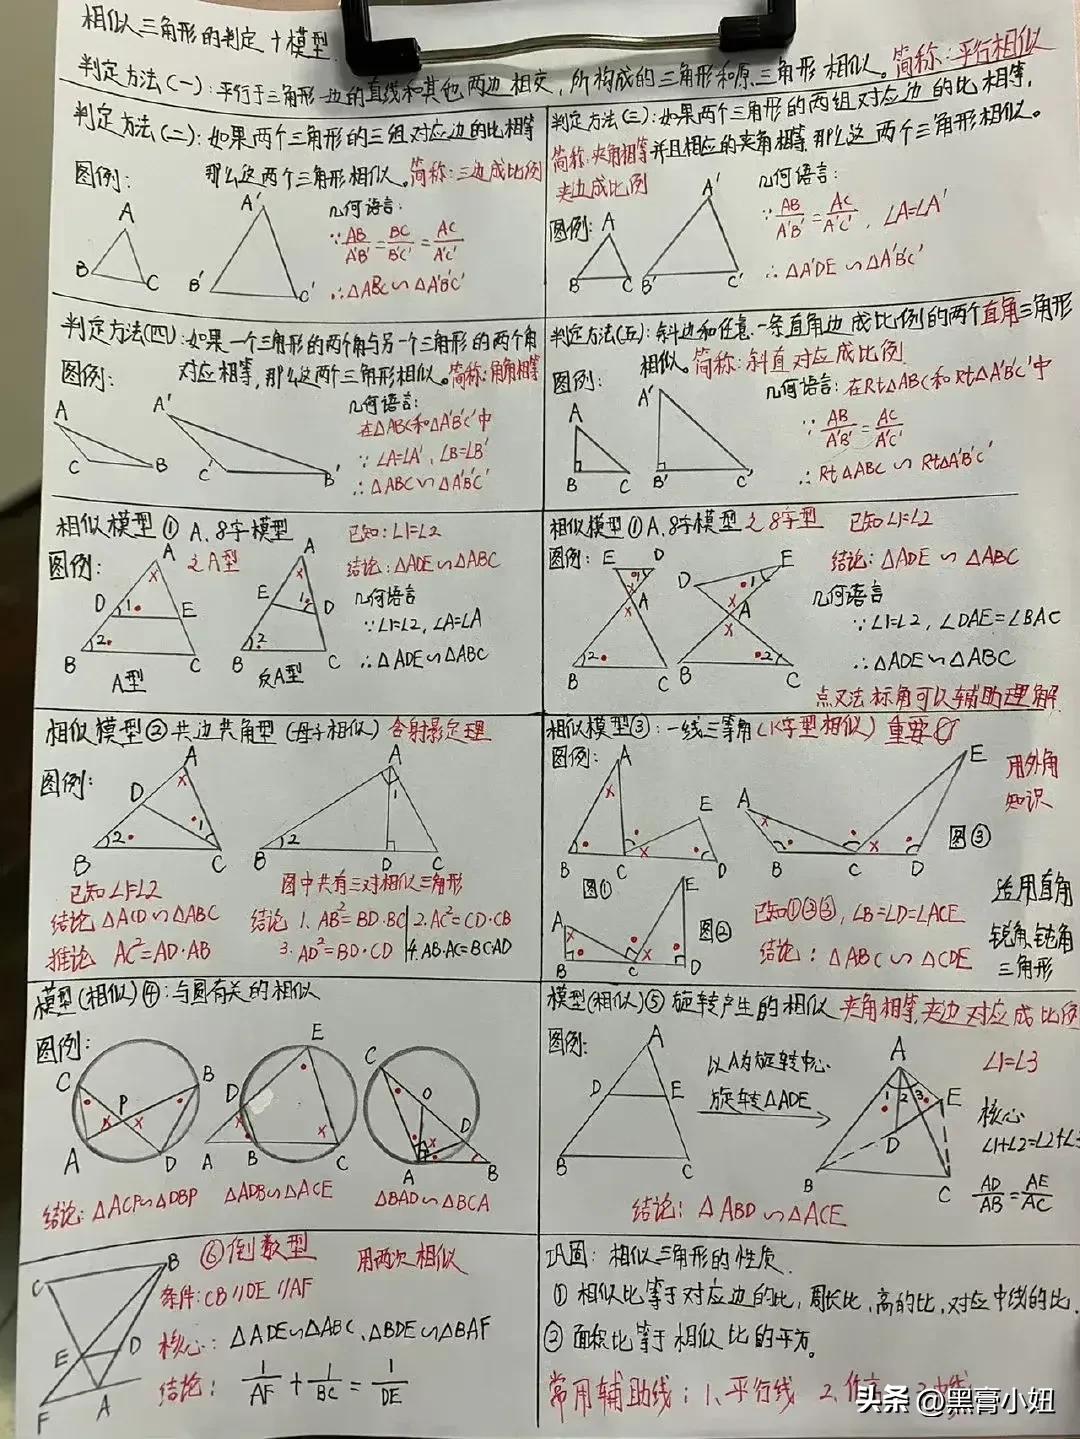 相似三角形的判定 + 模型
判定方法(一): 平行于三角形一边的直线和其他两边相交, 所构成的三角形和原三角形相似。简称: 平行相似
判定方法(二): 如果两个三角形的三组对应边的比相等
那么这两个三角形相似。简称: 三边成比例
图例:
几何语言:
∵ AB/A'B' = BC/B'C' = AC/A'C'
∴ △ABC∽△A'B'C'
A
B
C
A'
B'
C'
判定方法(三): 如果两个三角形的两组对应边的比相等,
并且相应的夹角相等, 那么这两个三角形相似。
简称: 夹角相等
夹边成比例
图例:
几何语言:
∵ AB/A'B' = AC/A'C', ∠A=∠A'
∴ △A'DE∽△A'B'C'
A
B
C
A'
B'
C'
判定方法(四): 如果一个三角形的两个角与另一个三角形的两个角
对应相等, 那么这两个三角形相似。简称: 角角相等
图例:
几何语言:
在△ABC和△A'B'C'中
∵ ∠A=∠A', ∠B=∠B'
∴ △ABC∽△A'B'C'
A
C
B
A'
C'
B'
判定方法(五): 斜边和任意一条直角边成比例的两个直角三角形
相似。简称: 斜直对应成比例
图例:
几何语言: 在Rt△ABC和Rt△A'B'C'中
∵ AB/A'B' = AC/A'C'
∴ Rt△ABC∽Rt△A'B'C'
A
B
C
A'
B'
C'
相似模型① A、8字模型
之A型
图例:
已知: ∠1=∠2
结论: △ADE∽△ABC
几何语言
∵ ∠1=∠2, ∠A=∠A
∴ △ADE∽△ABC
A
D
1
E
2
B
C
A型
A
E
1
D
2
B
C
反A型
相似模型① A、8字模型之8字型
已知∠1=∠2
图例:
结论: △ADE∽△ABC
几何语言
∵ ∠1=∠2, ∠DAE=∠BAC
∴ △ADE∽△ABC
点叉法标角可以辅助理解
E
D
1
A
2
B
C
D
E
1
A
2
B
C
相似模型② 共边共角型 (母子相似) 含射影定理
图例:
A
D
1
2
B
C
已知∠1=∠2
结论 △ACD∽△ABC
推论 AC²=AD·AB
A
1
2
B
D
C
图中共有三对相似三角形
结论 1. AB²=BD·BC 2. AC²=CD·CB
3. AD²=BD·CD 4. AB·AC=BC·AD
相似模型③: 一线三等角 (K字型相似) 重要
图例:
用外角
知识
A
B
C
D
E
图①
A
B
C
D
E
图②
A
B
C
D
E
图③
已知①②③, ∠B=∠D=∠ACE
结论: △ABC∽△CDE
适用直角
锐角、钝角
三角形
模型(相似)④: 与圆有关的相似
图例:
C
B
P
A
D
E
D
A
B
C
C
O
D
A
B
结论: △ACP∽△DBP
△ADB∽△ACE
△BAD∽△BCA
模型(相似)⑤ 旋转产生的相似 夹角相等, 夹边对应成比例
图例:
A
D
E
B
C
以A为旋转中心
旋转△ADE
A
1
2
3
E
D
B
C
∠1=∠3
核心
∠1+∠2=∠2+∠3
AD/AB = AE/AC
结论: △ABD∽△ACE
⑥倒数型
用两次相似
条件: CB//DE//AF
核心: △ADE∽△ABC, △BDE∽△BAF
结论: 1/AF + 1/BC = 1/DE
C
B
E
D
F
A
巩固: 相似三角形的性质
① 相似比等于对应边的比, 周长比, 高的比, 对应中线的比,
② 面积比等于相似比的平方。
常用辅助线: 1、平行线 2、
头条 @黑膏小妞